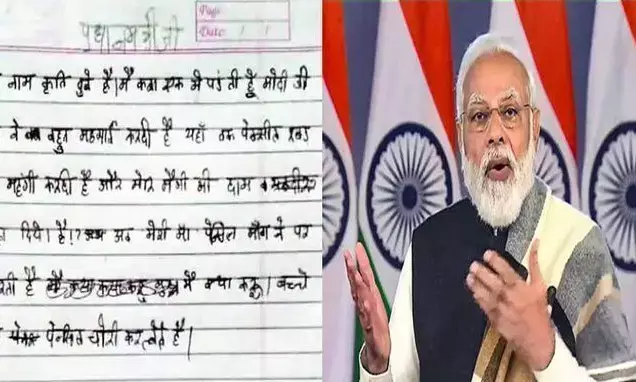 Page
Date / /
प्रधानमंत्री जी
नाम कृति दुबे है। मै कक्षा एक मे पडती हूँ मोदी जी
ने बहुत महगाई करदी है यहाँ तक पेन्सील रबड
महंगी करदी है और मेरे मैगी की दाम
दिये। है!? अब मेरी माँ पेन्सिल माँगने पर
ती है मै क्या करू। बच्चे
पेन्सिल चोरी कर लेते है।